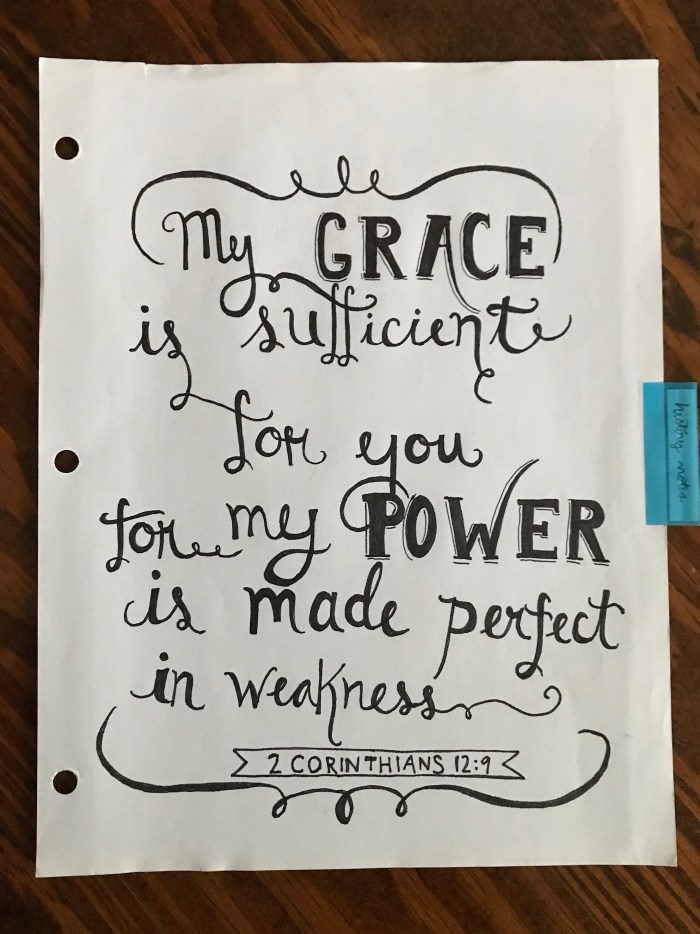 My GRACE
is sufficient
for you
for my POWER
is made perfect
in weakness
2 CORINTHIANS 12:9
history notes